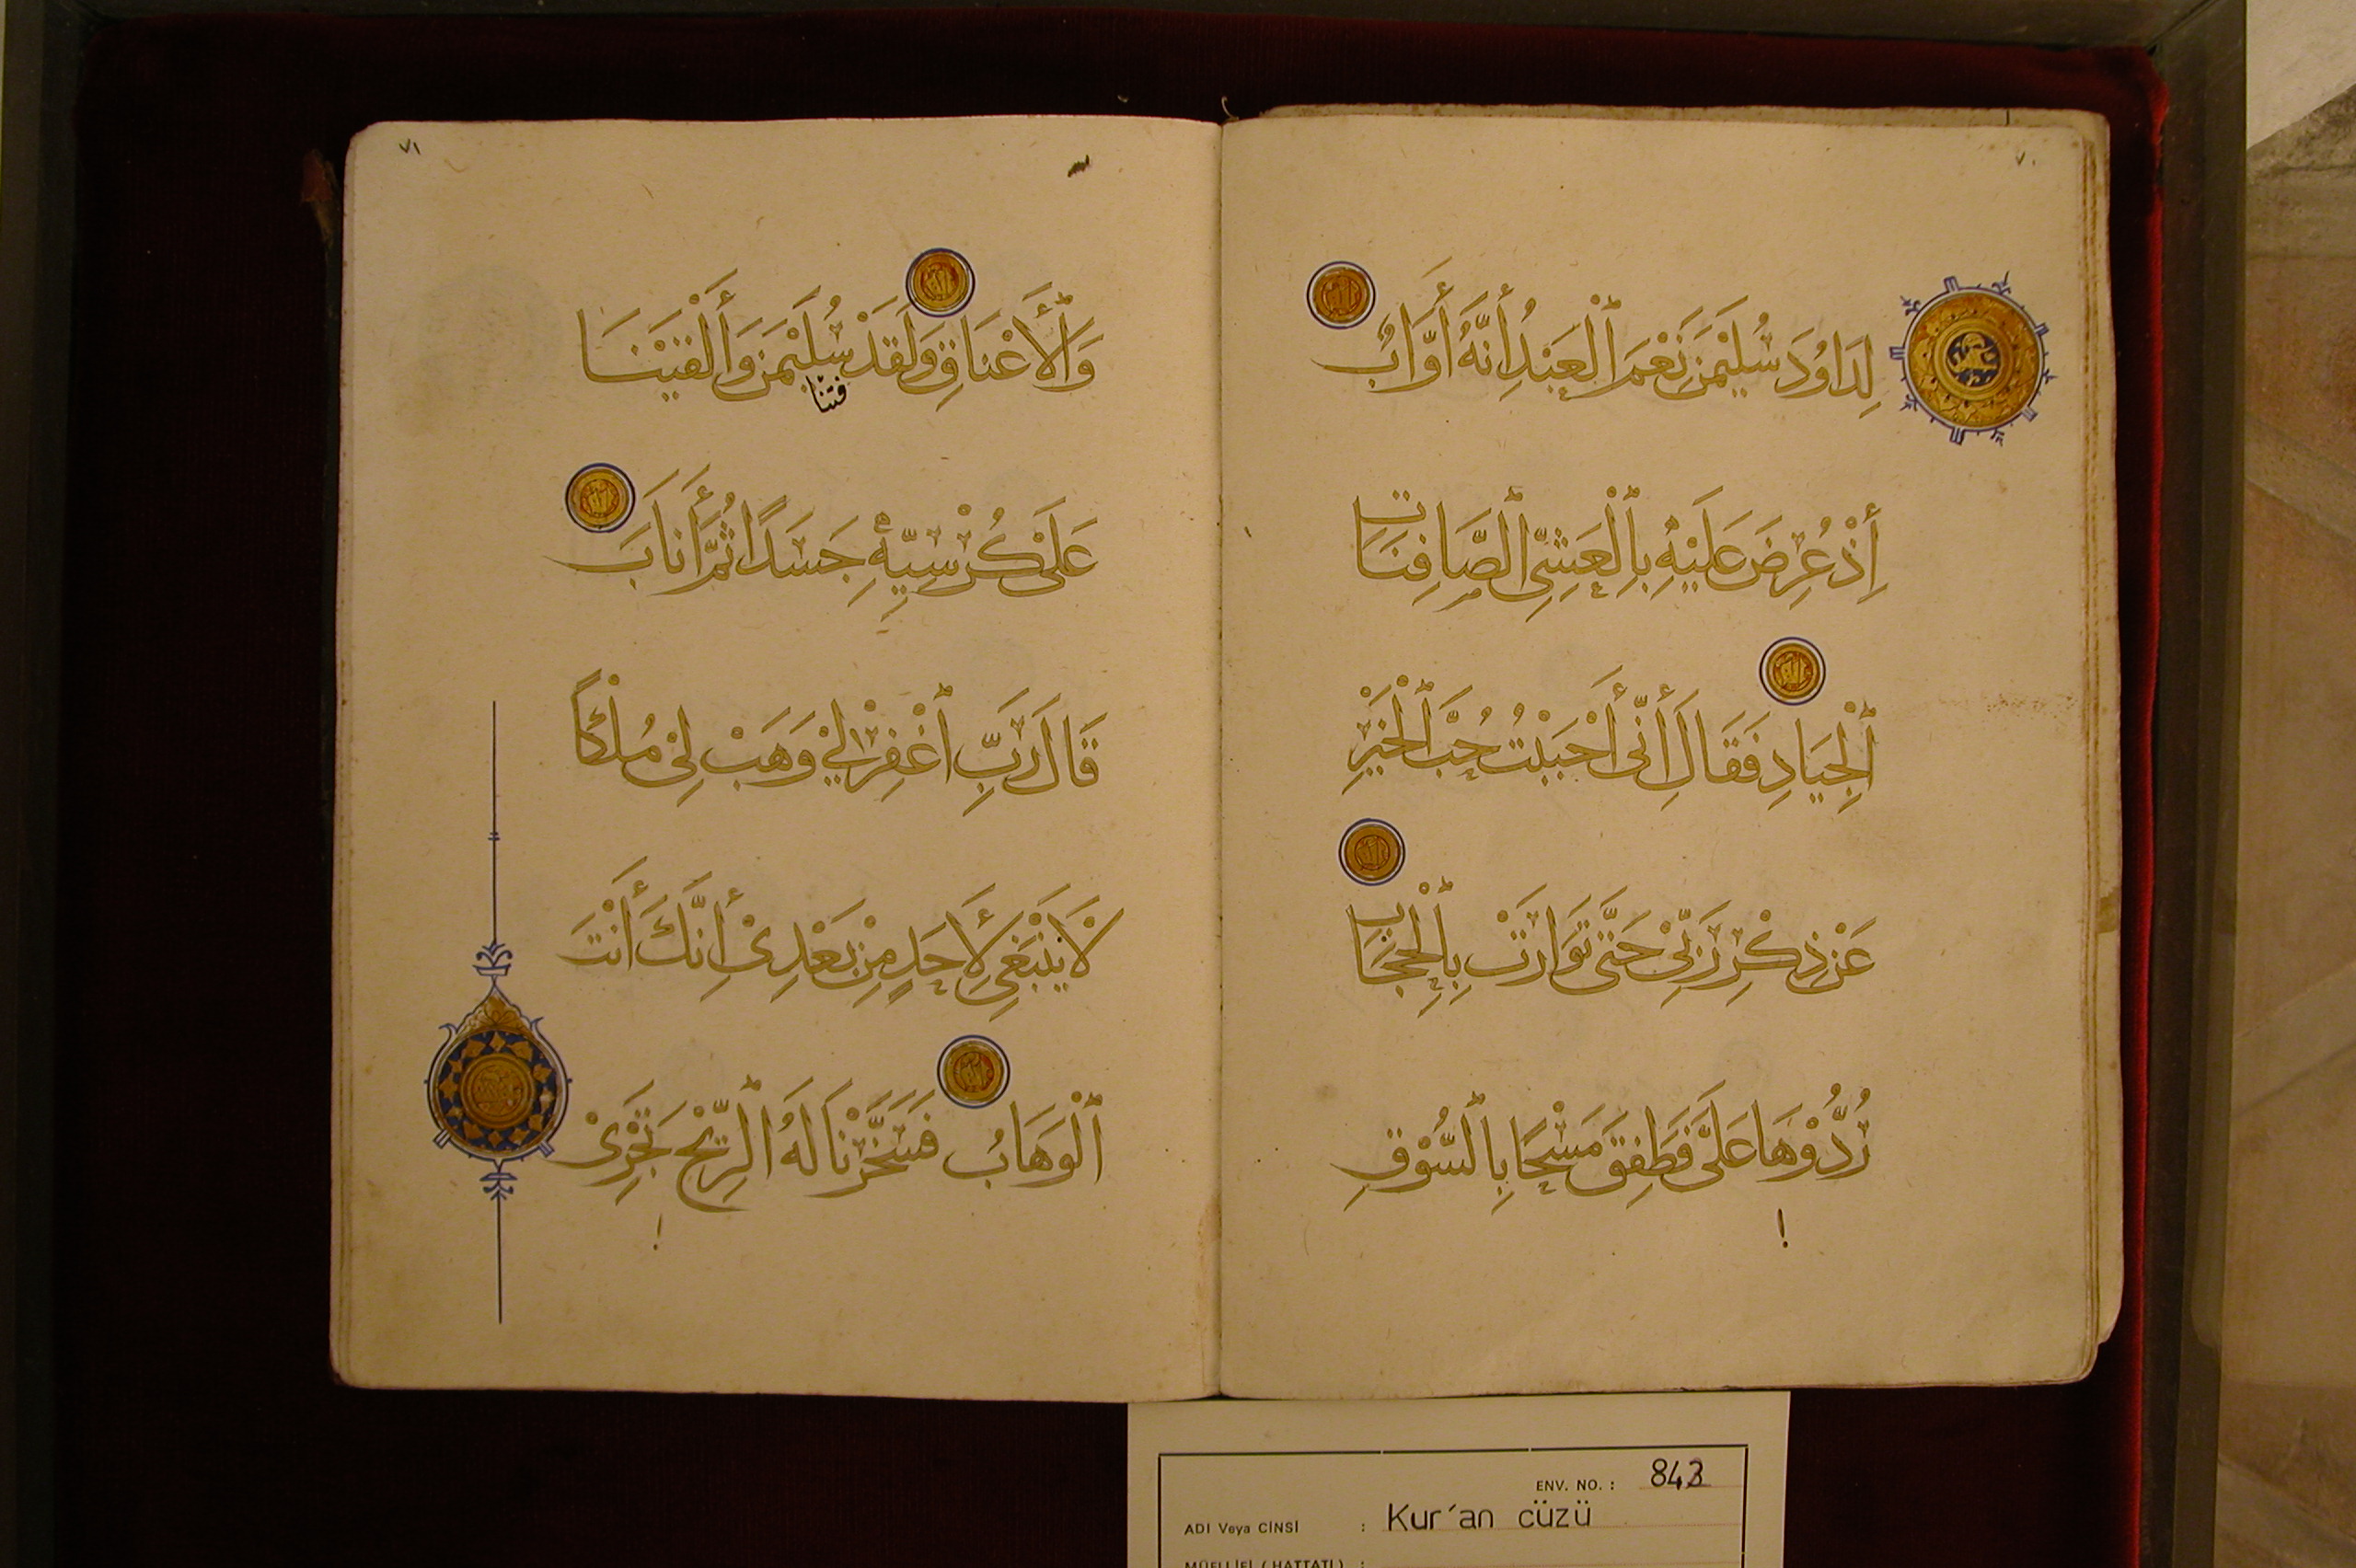 ٧٠
لِدَاوُدَ سُلَيْمَنَ نِعْمَ ٱلْعَبْدُ إِنَّهُ أَوَّابٌ
إِذْ عُرِضَ عَلَيْهِ بِٱلْعَشِىِّ ٱلصَّافِنَاتُ
ٱلْجِيَادُ فَقَالَ إِنِّى أَحْبَبْتُ حُبَّ ٱلْخَيْرِ
عَنْ ذِكْرِ رَبِّىْ حَتَّى تَوَارَتْ بِٱلْحِجَابِ
رُدُّوْهَا عَلَىَّ فَطَفِقَ مَسْحًا بِٱلسُّوْقِ
٧١
وَٱلْأَعْنَاقِ وَلَقَدْ سُلَيْمَنَ وَأَلْقَيْنَا
فتنا
عَلَى كُرْسِيِّهِ جَسَدًا ثُمَّ أَنَابَ
قَالَ رَبِّ ٱغْفِرْ لِيْ وَهَبْ لِىْ مُلْكًا
لَا يَنْبَغِى لِأَحَدٍ مِنْ بَعْدِىْ إِنَّكَ أَنْتَ
ٱلْوَهَابُ فَسَخَّرْنَا لَهُ ٱلرِّيْحَ تَجْرِىْ
ENV. NO. : 843
ADI Veya CİNSİ : Kur'an cüzü
MÜELLİFİ ( HATTATI ) :